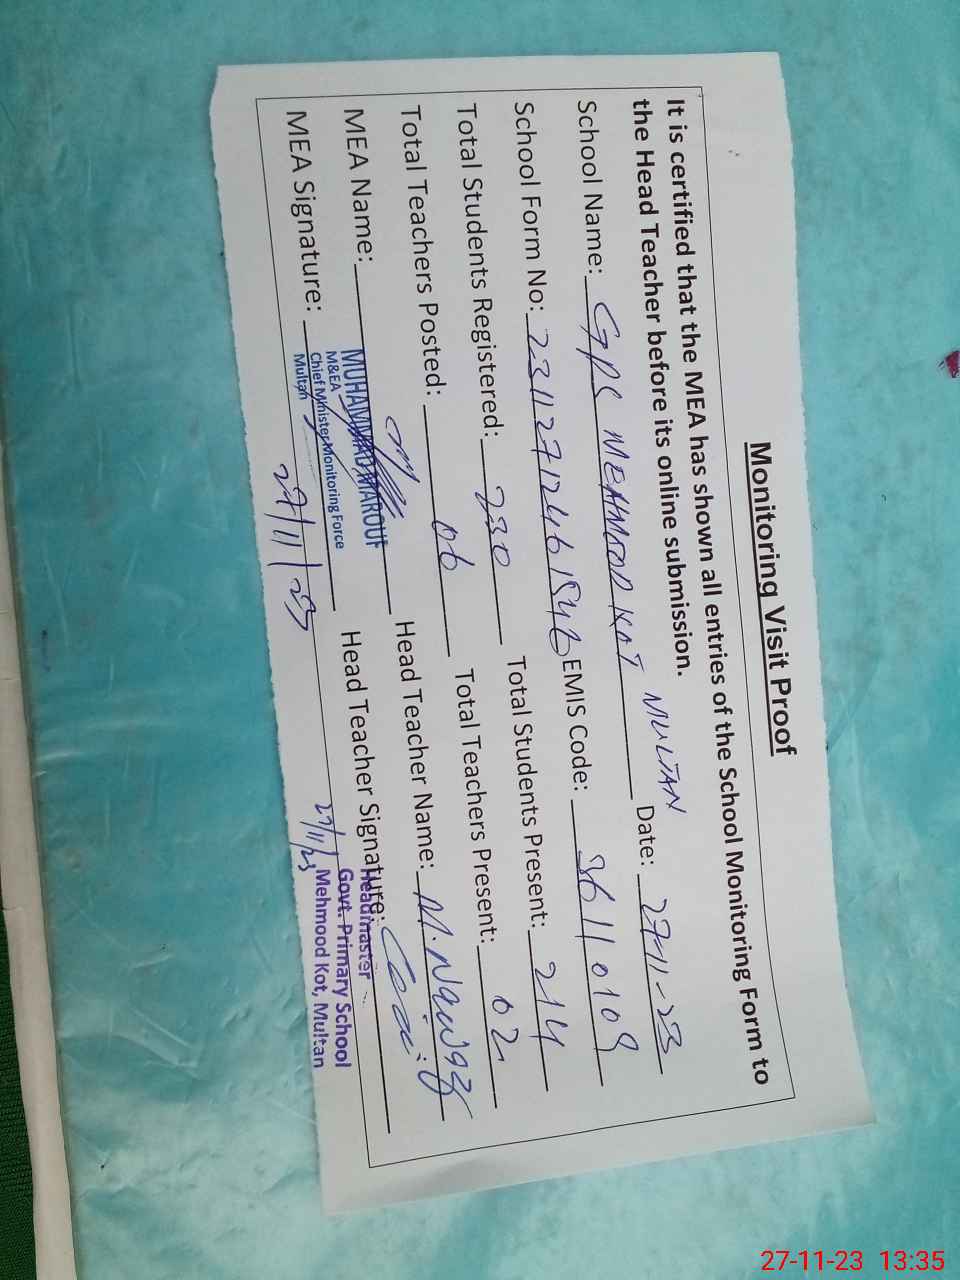 Monitoring Visit Proof
It is certified that the MEA has shown all entries of the School Monitoring Form to
the Head Teacher before its online submission.
School Name: GPS MEHMOOD KOT MULTAN Date: 27-11-23
School Form No: 23112712461546 EMIS Code: 36110109
Total Students Registered: 230 Total Students Present: 214
Total Teachers Posted: 06 Total Teachers Present: 02
MEA Name: MUHAMMAD MAROUF Head Teacher Name: M. Nawaz
M&EA
Chief Minister Monitoring Force
Multan
MEA Signature: Head Teacher Signature:
27/11/23
27/11/23
Headmaster
Govt. Primary School
Mehmood Kot, Multan
27-11-23 13:35